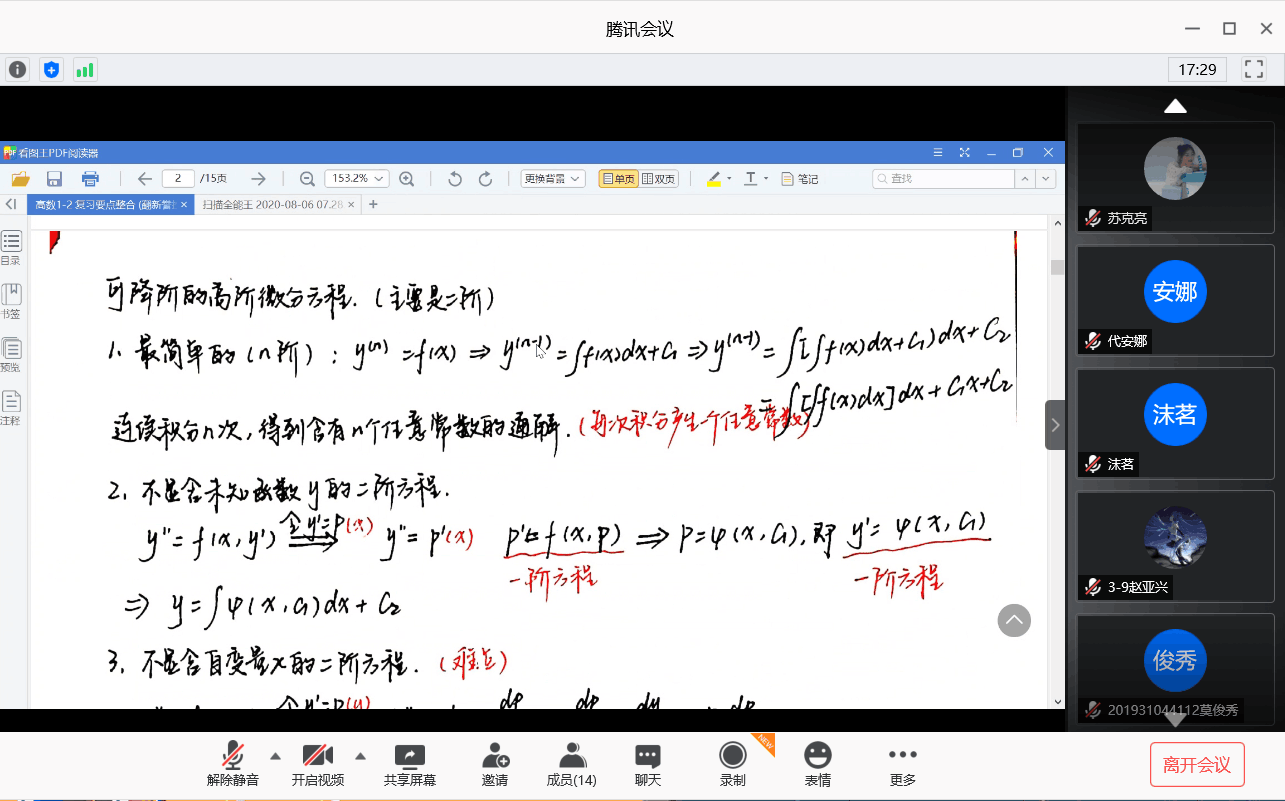 腾讯会议
17:29
看图王PDF阅读器
2 /15页 153.2% 更换背景 单页 双页 T 笔记 查找
高数1-2 复习要点整合 (翻新管 扫描全能王 2020-08-06 07.28
目录
书签
预览
注释
可降阶的高阶微分方程.(主要是二阶)
1. 最简单的(n阶): y⁽ⁿ⁾=f(x) ⇒ y⁽ⁿ⁻¹⁾=∫f(x)dx+C₁ ⇒ y⁽ⁿ⁻¹⁾=∫[∫f(x)dx+C₁)dx+C₂
=∫[∫f(x)dx]dx+C₁x+C₂
连续积分n次,得到含有n个任意常数的通解.(每次积分产生一个任意常数)
2. 不显含未知函数y的二阶方程.
y''=f(x,y') 令y'=p(x) y''=p'(x) p'=f(x,p) ⇒ p=φ(x,C₁),即 y'=φ(x,C₁)
一阶方程 一阶方程
⇒ y=∫φ(x,C₁)dx+C₂
3. 不显含自变量x的二阶方程.(难点)
令y'=p(y)
苏克亮
安娜
代安娜
沫茗
沫茗
3-9赵亚兴
俊秀
201931044112莫俊秀
解除静音 开启视频 共享屏幕 邀请 成员(14) 聊天 录制 NEW 表情 更多 离开会议